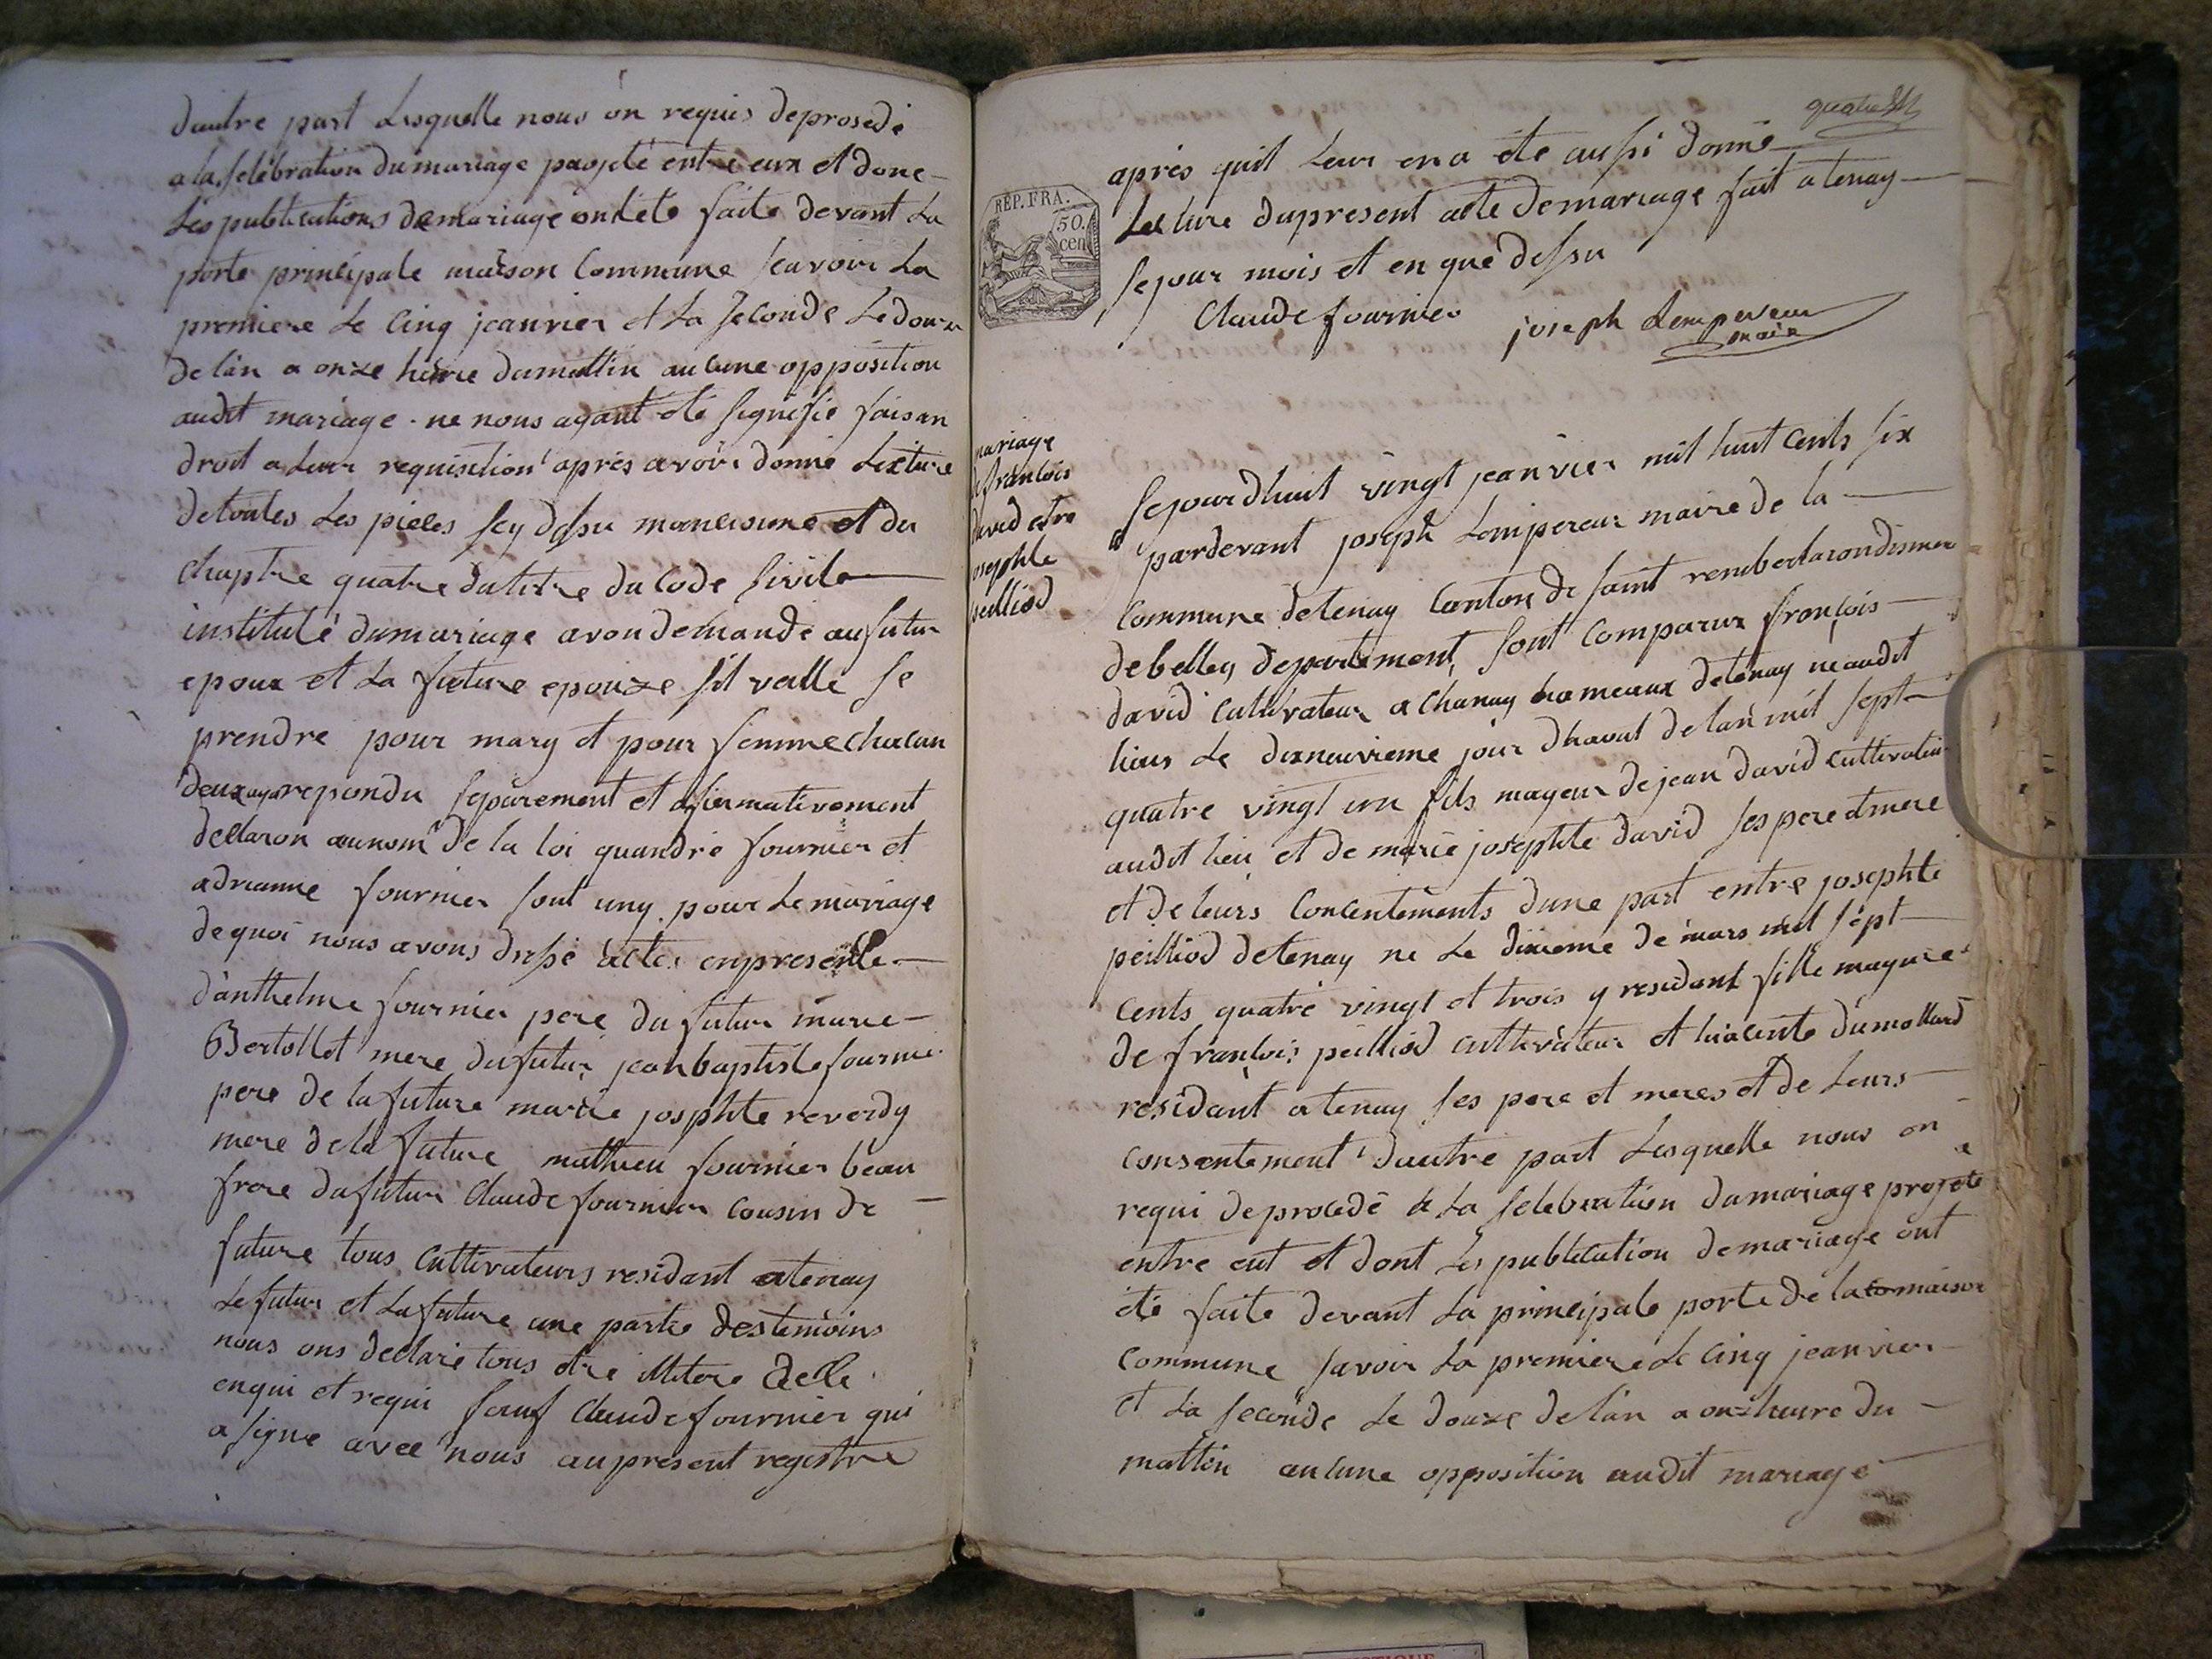 dautre part Lesquelle nous on requis deprosedé
a la selebration du mariage projeté entre eux et donc
Les publications de mariage ont été faite devant La
porte principale maison Commune scavoir La
premiere Le Cinq jeanvier et La seconde Le douze
de lan a onze heure du mattin aucune opposition
audit mariage ne nous ayant été signifié faisan
droit a Leur requisition aprés avoir donné Lecture
de toutes Les pieces sey dessu mancionné et du
Chaptre quatre du titre du Code sivile
institulé du mariage avon demandé au futur
epoux et La future epouze sil veulle se
prendre pour mary et pour femme chacun
deux aya repondu séparement et afirmativement
declaron au nom de la loi quandré fournier et
adrianne fournier sont uny pour Le mariage
de quoi nous avons dressé acte enpresence
danthelme fournier pere du futur marie
Bertollet mere du futur jean baptiste fournier
pere de la future marie josphte reverdy
mere de la future mathieu fournier beau
frere du futur Claude fournier cousin de
future tous Cultivateurs residant a tenay
Le futur et La future une partie des temoins
nous ons declaré tous être illitere de le
enqui et requi sauf Claude fournier qui
a signe avec nous au present registre
quatre
REP. FRA.
50.
cen
aprés quil Leur en a été aussi donné
Lecture du present acte de mariage fait a tenay
se jour mois et en que dessu
Claude fournier joseph Lempereur
maire
mariage
de francois
david et de
josephte
peilliod
sejourdhuit vingt jeanvier mil huit Cents six
pardevant joseph Lempereur maire de la
Commune de tenay Canton de saint rembert arondismen
de belley departement, sont Comparux françois
david Cultivateur a Chanay hameaux de tenay né audit
lieus Le dixneuvieme jour dhaout de lan mil sept
quatre vingt un fils mageur de jean david Cultivateur
audit lieu et de marie josephte david ses pere et mere
et de leurs Concentements dune part entre josephte
peilliod de tenay né Le dixieme de mars mil sept
Cents quatre vingt et trois y residant fille mageure
de françois peilliod Cultivateur et hiacente dumollard
residant a tenay ses pere et meres et de Leurs
consentement dautre part Lesquelle nous on
requi de procedé a La selebration du mariage projeté
entre eut et dont Les publication de mariage ont
été faite devant La principale porte de la co maison
Commune savoir La premiere Le Cinq jeanvier
et La seconde Le douze de lan a onze heure du
mattin aucune opposition audit mariage